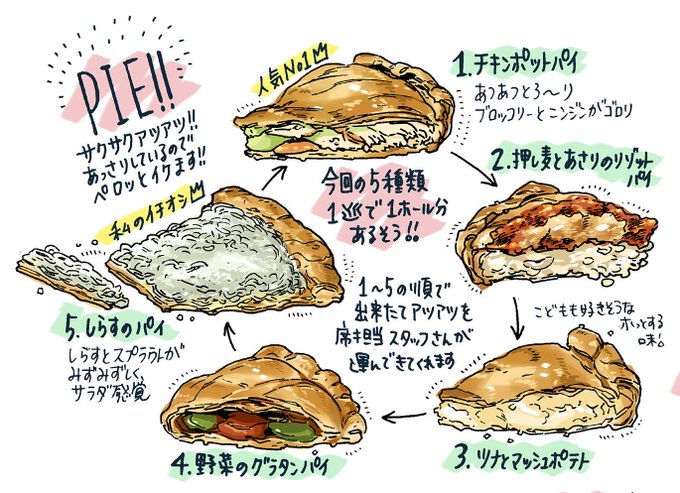 PIE!!
サクサクアツアツ!!
あっさりしているので
ペロッとイケます!!
人気No1
1.チキンポットパイ
あつあつとろ〜り
ブロッコリーとニンジンがゴロリ
2.押し麦とあさりのリゾット
パイ
こどもも好きそうな
ホッとする
味!
3.ツナとマッシュポテト
4.野菜のグラタンパイ
私のイチオシ
5.しらすのパイ
しらすとスプラウトが
みずみずしく、
サラダ感覚
今回の5種類
1巡で1ホール分
あるそう!!
1〜5の順で
出来たてアツアツを
席担当スタッフさんが
運んできてくれます